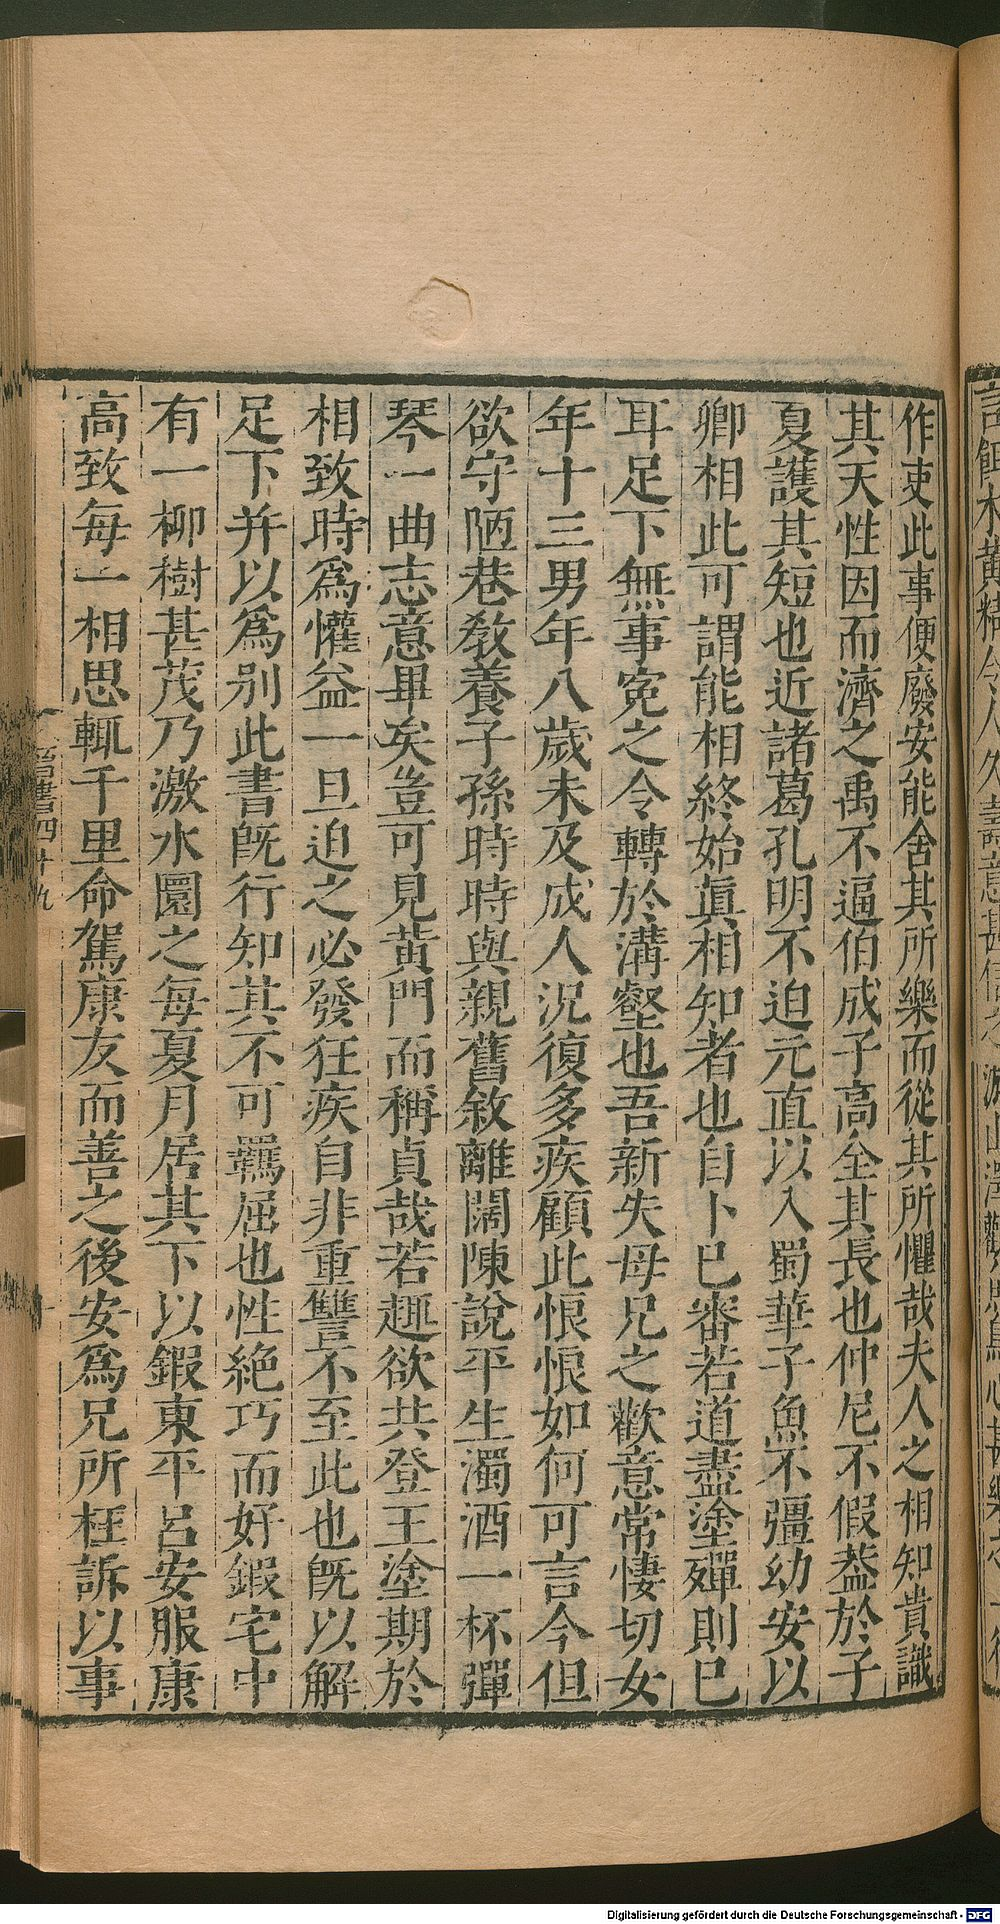 作吏此事便廢安能舍其所樂而從其所懼哉夫人之相知貴識
其天性因而濟之禹不逼伯成子高全其長也仲尼不假葢於子
夏護其短也近諸葛孔明不迫元直以入蜀華子魚不彊幼安以
卿相此可謂能相終始真相知者也自卜已審若道盡塗殫則已
耳足下無事寃之令轉於溝壑也吾新失母兄之歡意常悽切女
年十三男年八歲未及成人況復多疾顧此恨恨如何可言今但
欲守陋巷教養子孫時時與親舊敘離闊陳說平生濁酒一杯彈
琴一曲志意畢矣豈可見黄門而稱貞哉若趣欲共登王塗期於
相致時爲懽益一旦迫之必發狂疾自非重讐不至此也旣以解
足下并以爲別此書旣行知其不可羈屈也性絶巧而好鍜宅中
有一柳樹甚茂乃激水圜之每夏月居其下以鍜東平呂安服康
高致每一相思輒千里命駕康友而善之後安爲兄所枉訴以事
晉書四十九
Digitalisierung gefördert durch die Deutsche Forschungsgemeinschaft - DFG